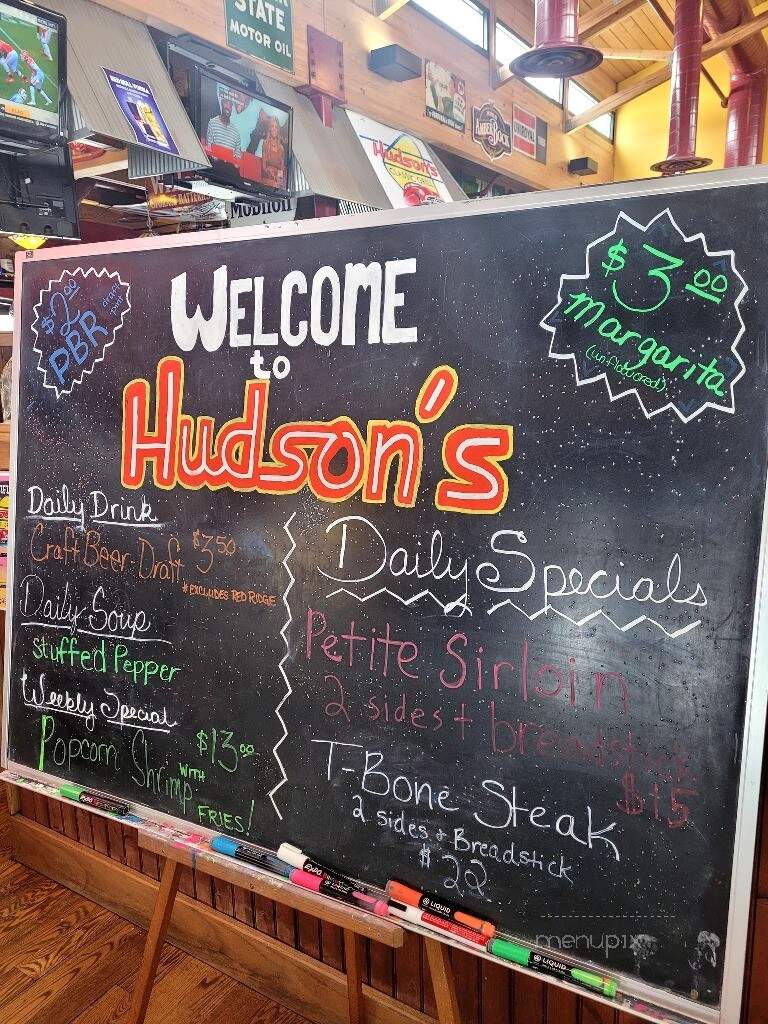 STATE
MOTOR OIL
Hudson's
CLASSIC GRILL
AMBERBOCK
Mobiloil
$2.00
PBR
draft
pint
WELCOME
to
Hudson's
$3.00
margarita
(unflavored)
Daily Drink
Craft Beer-Draft $3.50
*EXCLUDES RED RIDGE
Daily Soup
Stuffed Pepper
Weekly Special
Popcorn Shrimp $13.00
WITH
FRIES!
Daily Specials
Petite Sirloin
2 sides + breadstick
$15
T-Bone Steak
2 sides + Breadstick
$22
EXPO
LIQUID
LIQUID
menupix